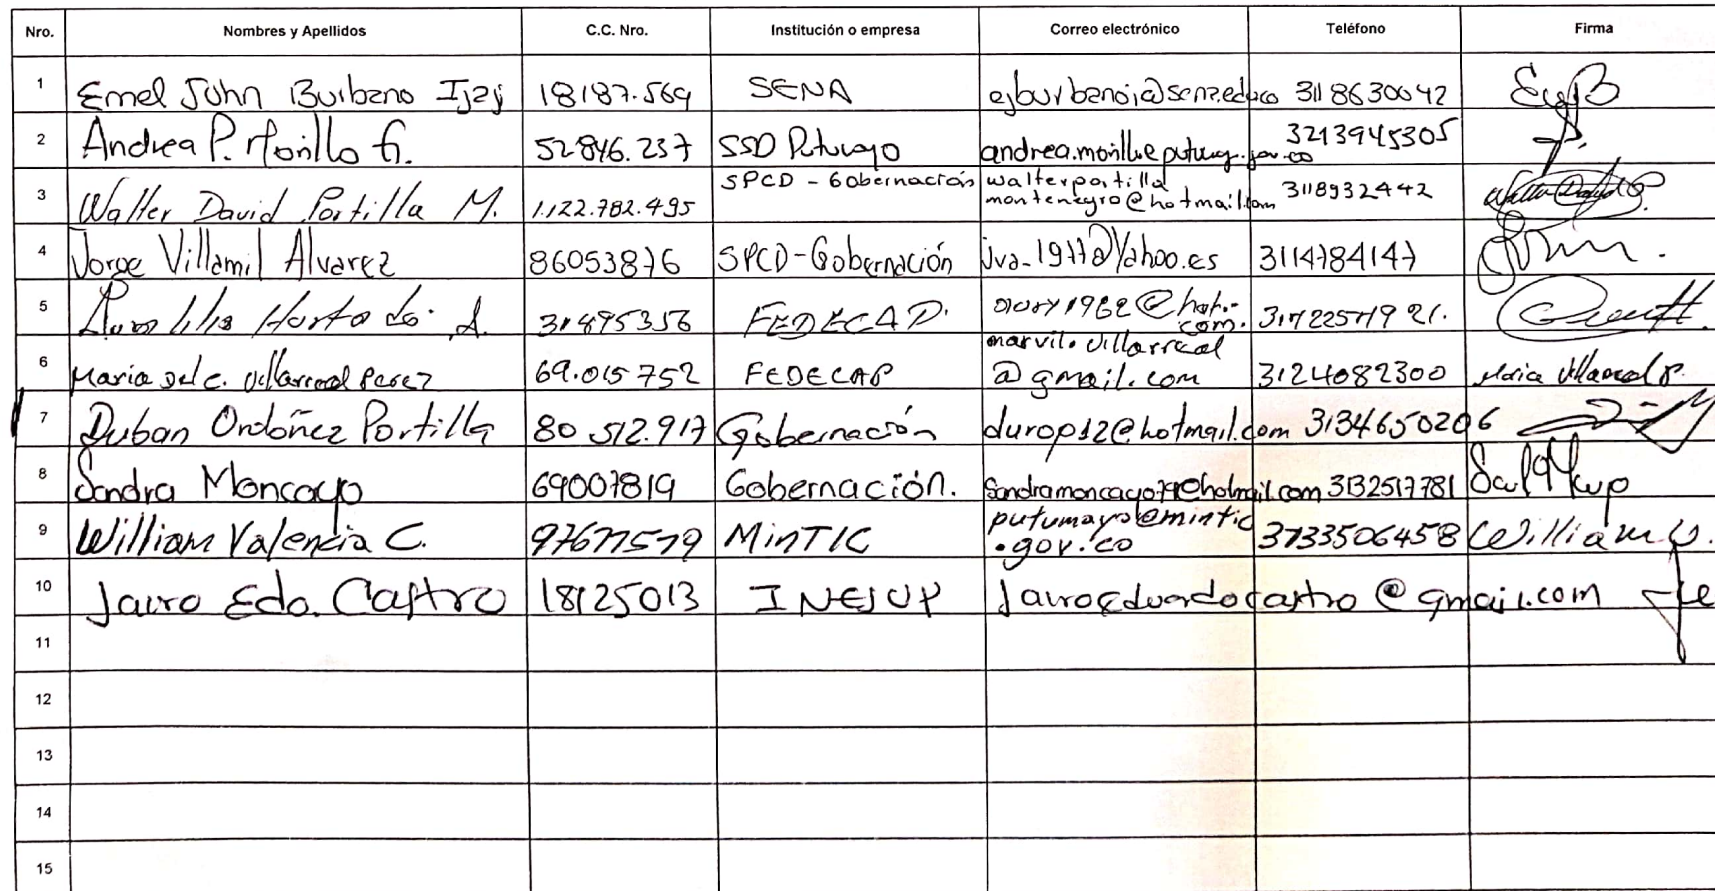 Nro. Nombres y Apellidos C.C. Nro. Institución o empresa Correo electrónico Teléfono Firma
1 Emel John Burbano 18187.569 SENA ejburbanoi@sena.edu.co 3118630042
2 Andrea P. Morillo G. 52.846.237 SSD Putumayo andrea.morillo@putumayo.gov.co 3213945305
3 Walter David Portilla M. 1.122.782.495 SPCD - Gobernación walterportilla
montenegro@hotmail.com 3118932442
4 Jorge Villamil Alvarez 86053876 SPCD-Gobernación jva_1977@Yahoo.es 3114784147
5 Hurtado A. 31895356 FEDECAP. @hot.
com.
6 Maria del c. Villarreal Perez 69.015752 FEDECAP marvilo.villarreal
@gmail.com 3124082300 Maria Villarreal P.
7 Duban Ordóñez Portilla 80 512.917 Gobernación durop12@hotmail.com 3134650206
8 Sandra Moncayo 69007819 Gobernación. Sandramoncayo79@hotmail.com 3132517781
9 William Valencia C. 97677579 MinTIC putumayo@mintic
.gov.co 3133506458 William V.
10 Jairo Edo. Castro 18125013 INESUP Jairoeduardocastro@gmail.com
11
12
13
14
15